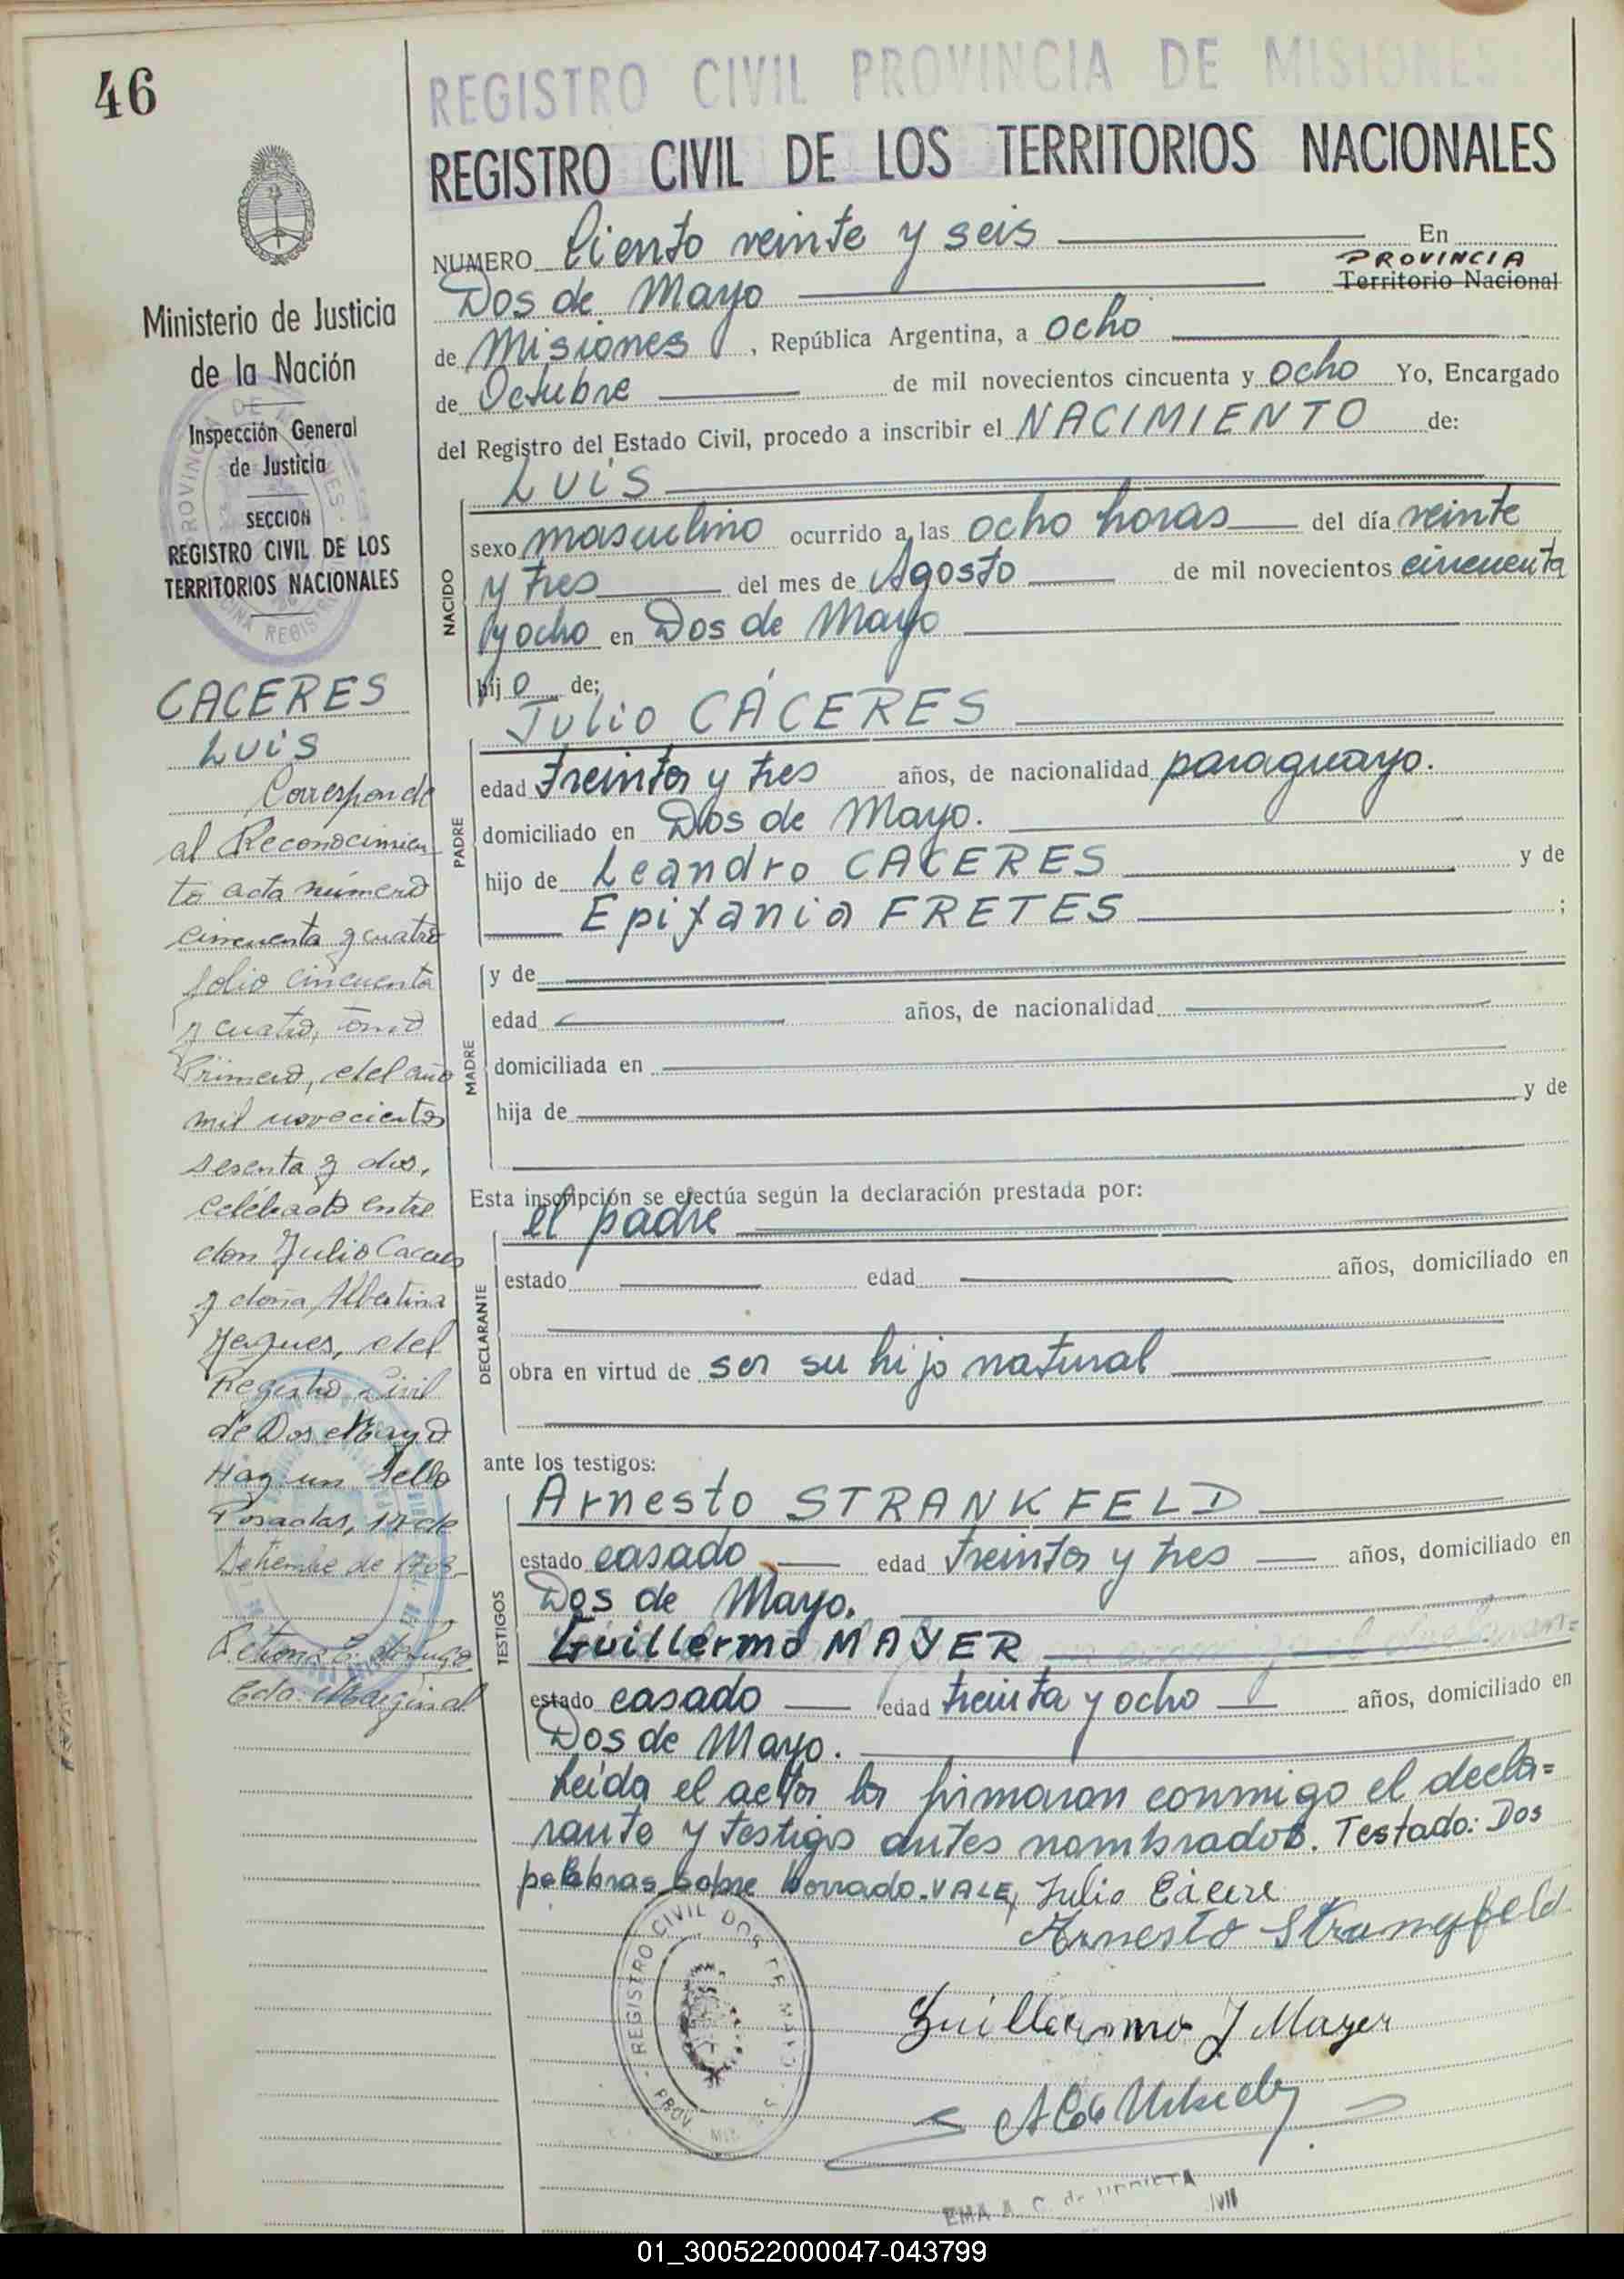 46
REGISTRO CIVIL PROVINCIA DE MISIONES
REGISTRO CIVIL DE LOS TERRITORIOS NACIONALES
NUMERO Ciento veinte y seis En
PROVINCIA
Dos de Mayo Territorio Nacional
de Misiones, República Argentina, a ocho
de Octubre de mil novecientos cincuenta y ocho Yo, Encargado
del Registro del Estado Civil, procedo a inscribir el NACIMIENTO de:
Luis
NACIDO
sexo masculino ocurrido a las ocho horas del día veinte
y tres del mes de Agosto de mil novecientos cincuenta
y ocho en Dos de Mayo
hijo de;
Julio CÁCERES
PADRE
edad treinta y tres años, de nacionalidad paraguayo.
domiciliado en Dos de Mayo.
hijo de Leandro CACERES y de
Epifania FRETES ;
MADRE
y de
edad años, de nacionalidad
domiciliada en
hija de y de
Esta inscripción se efectúa según la declaración prestada por:
el padre
DECLARANTE
estado edad años, domiciliado en
obra en virtud de ser su hijo natural
ante los testigos:
TESTIGOS
Arnesto STRANKFELD
estado casado edad treinta y tres años, domiciliado en
Dos de Mayo.
Guillermo MAYER
estado casado edad treinta y ocho años, domiciliado en
Dos de Mayo.
Leida el acta la firmaron conmigo el decla=
rante y testigos antes nombrados. Testado: Dos
palabras sobre borrado-VALE, Julio Cácere
Arnesto Strangfeld
Guillermo J Mayer
REGISTRO CIVIL DOS DE MAYO
PROV. MIS
EMA A. C. de URRIETA
Ministerio de Justicia
de la Nación
Inspección General
de Justicia
SECCION
REGISTRO CIVIL DE LOS
TERRITORIOS NACIONALES
CACERES
Luis
Corresponde
al Reconocimien
to acta número
cincuenta y cuatro
folio cincuenta
y cuatro, tomo
Primero, del año
mil novecientos
sesenta y dos,
celebrado entre
don Julio Caceres
y doña Albertina
del
Registro Civil
de Dos de Mayo
Hay un sello
Posadas, 17 de
Setiembre de 1963
Marginal
01_300522000047-043799